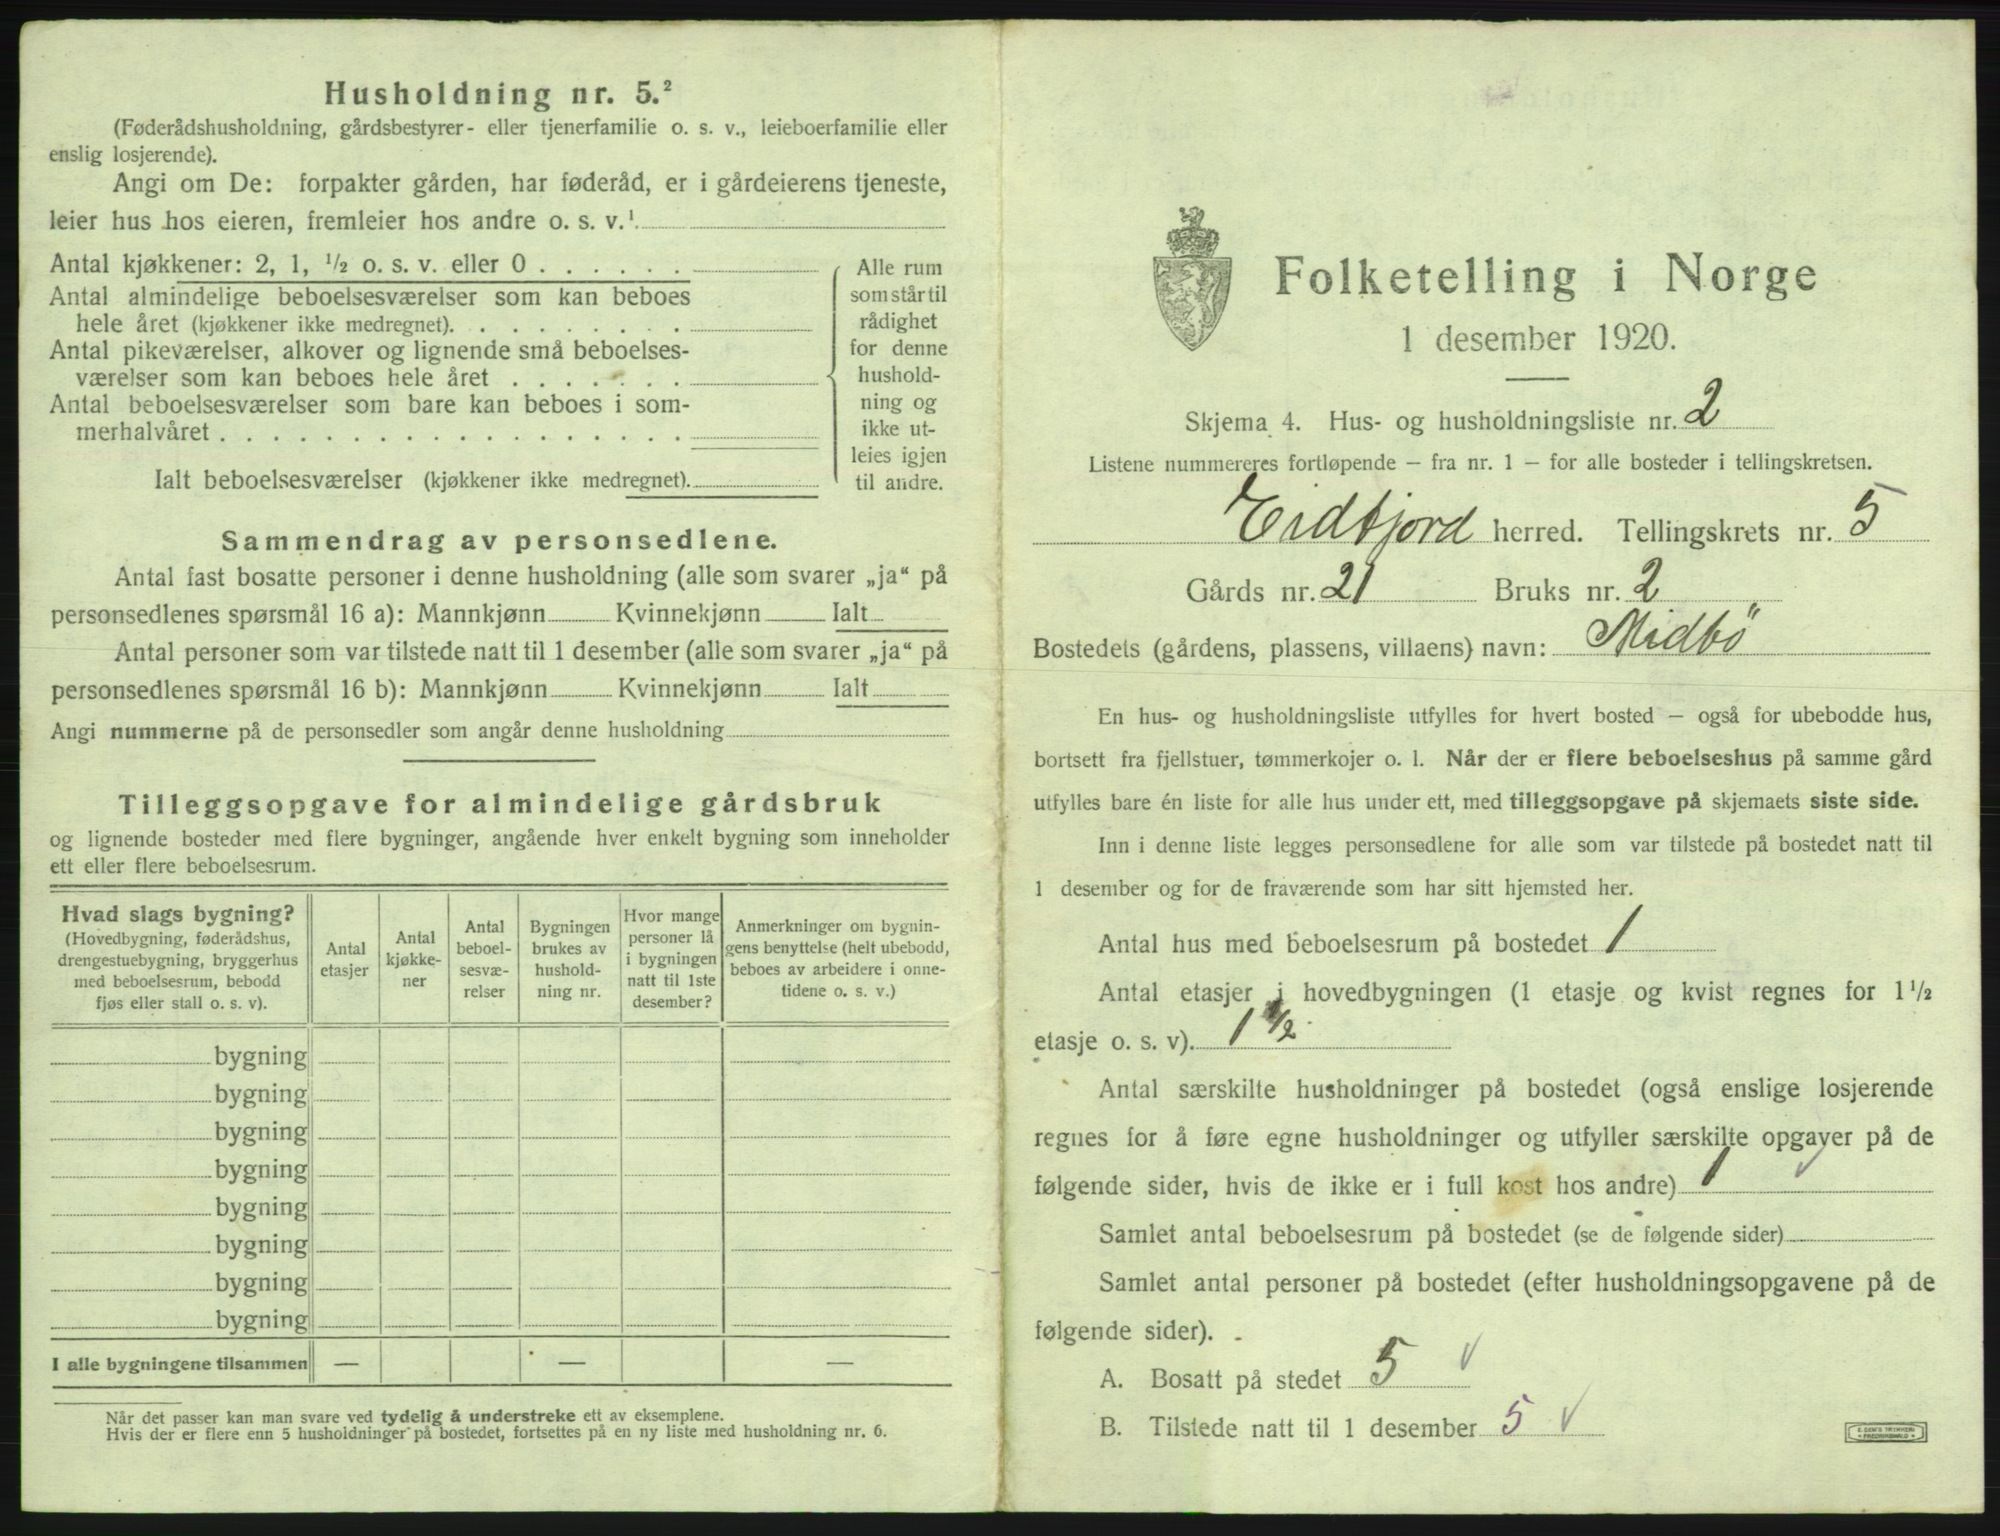 Husholdning nr. 5.²
(Føderådshusholdning, gårdsbestyrer- eller tjenerfamilie o. s. v., leieboerfamilie eller
enslig losjerende).
Angi om De: forpakter gården, har føderåd, er i gårdeierens tjeneste,
leier hus hos eieren, fremleier hos andre o. s. v.¹
Antal kjøkkener: 2, 1, ½ o. s. v. eller 0 . . . . . .
Antal almindelige beboelsesværelser som kan beboes
hele året (kjøkkener ikke medregnet). . . . . . . . .
Antal pikeværelser, alkover og lignende små beboelses-
værelser som kan beboes hele året . . . . . . .
Antal beboelsesværelser som bare kan beboes i som-
merhalvåret . . . . . . . . . . . . . . . . . .
Ialt beboelsesværelser (kjøkkener ikke medregnet).
Alle rum
som står til
rådighet
for denne
hushold-
ning og
ikke ut-
leies igjen
til andre.
Sammendrag av personsedlene.
Antal fast bosatte personer i denne husholdning (alle som svarer „ja“ på
personsedlenes spørsmål 16 a): Mannkjønn Kvinnekjønn Ialt
Antal personer som var tilstede natt til 1 desember (alle som svarer „ja“ på
personsedlenes spørsmål 16 b): Mannkjønn Kvinnekjønn Ialt
Angi nummerne på de personsedler som angår denne husholdning
Tilleggsopgave for almindelige gårdsbruk
og lignende bosteder med flere bygninger, angående hver enkelt bygning som inneholder
ett eller flere beboelsesrum.
Hvad slags bygning?
(Hovedbygning, føderådshus,
drengestuebygning, bryggerhus
med beboelsesrum, bebodd
fjøs eller stall o. s. v).
Antal
etasjer
Antal
kjøkke-
ner
Antal
beboel-
sesvæ-
relser
Bygningen
brukes av
hushold-
ning nr.
Hvor mange
personer lå
i bygningen
natt til 1ste
desember?
Anmerkninger om bygnin-
gens benyttelse (helt ubebodd,
beboes av arbeidere i onne-
tidene o. s. v.)
bygning
bygning
bygning
bygning
bygning
bygning
bygning
bygning
I alle bygningene tilsammen — — —
Når det passer kan man svare ved tydelig å understreke ett av eksemplene.
Hvis der er flere enn 5 husholdninger på bostedet, fortsettes på en ny liste med husholdning nr. 6.
Folketelling i Norge
1 desember 1920.
Skjema 4. Hus- og husholdningsliste nr. 2
Listene nummereres fortløpende – fra nr. 1 – for alle bosteder i tellingskretsen.
Eidfjord herred. Tellingskrets nr. 5
Gårds nr. 21 Bruks nr. 2
Bostedets (gårdens, plassens, villaens) navn: Midbö
En hus- og husholdningsliste utfylles for hvert bosted – også for ubebodde hus,
bortsett fra fjellstuer, tømmerkojer o. l. Når der er flere beboelseshus på samme gård
utfylles bare én liste for alle hus under ett, med tilleggsopgave på skjemaets siste side.
Inn i denne liste legges personsedlene for alle som var tilstede på bostedet natt til
1 desember og for de fraværende som har sitt hjemsted her.
Antal hus med beboelsesrum på bostedet 1
Antal etasjer i hovedbygningen (1 etasje og kvist regnes for 1½
etasje o. s. v). 1 ½
Antal særskilte husholdninger på bostedet (også enslige losjerende
regnes for å føre egne husholdninger og utfyller særskilte opgaver på de
følgende sider, hvis de ikke er i full kost hos andre) 1 ✓
Samlet antal beboelsesrum på bostedet (se de følgende sider)
Samlet antal personer på bostedet (efter husholdningsopgavene på de
følgende sider).
A. Bosatt på stedet 5 ✓
B. Tilstede natt til 1 desember 5 ✓